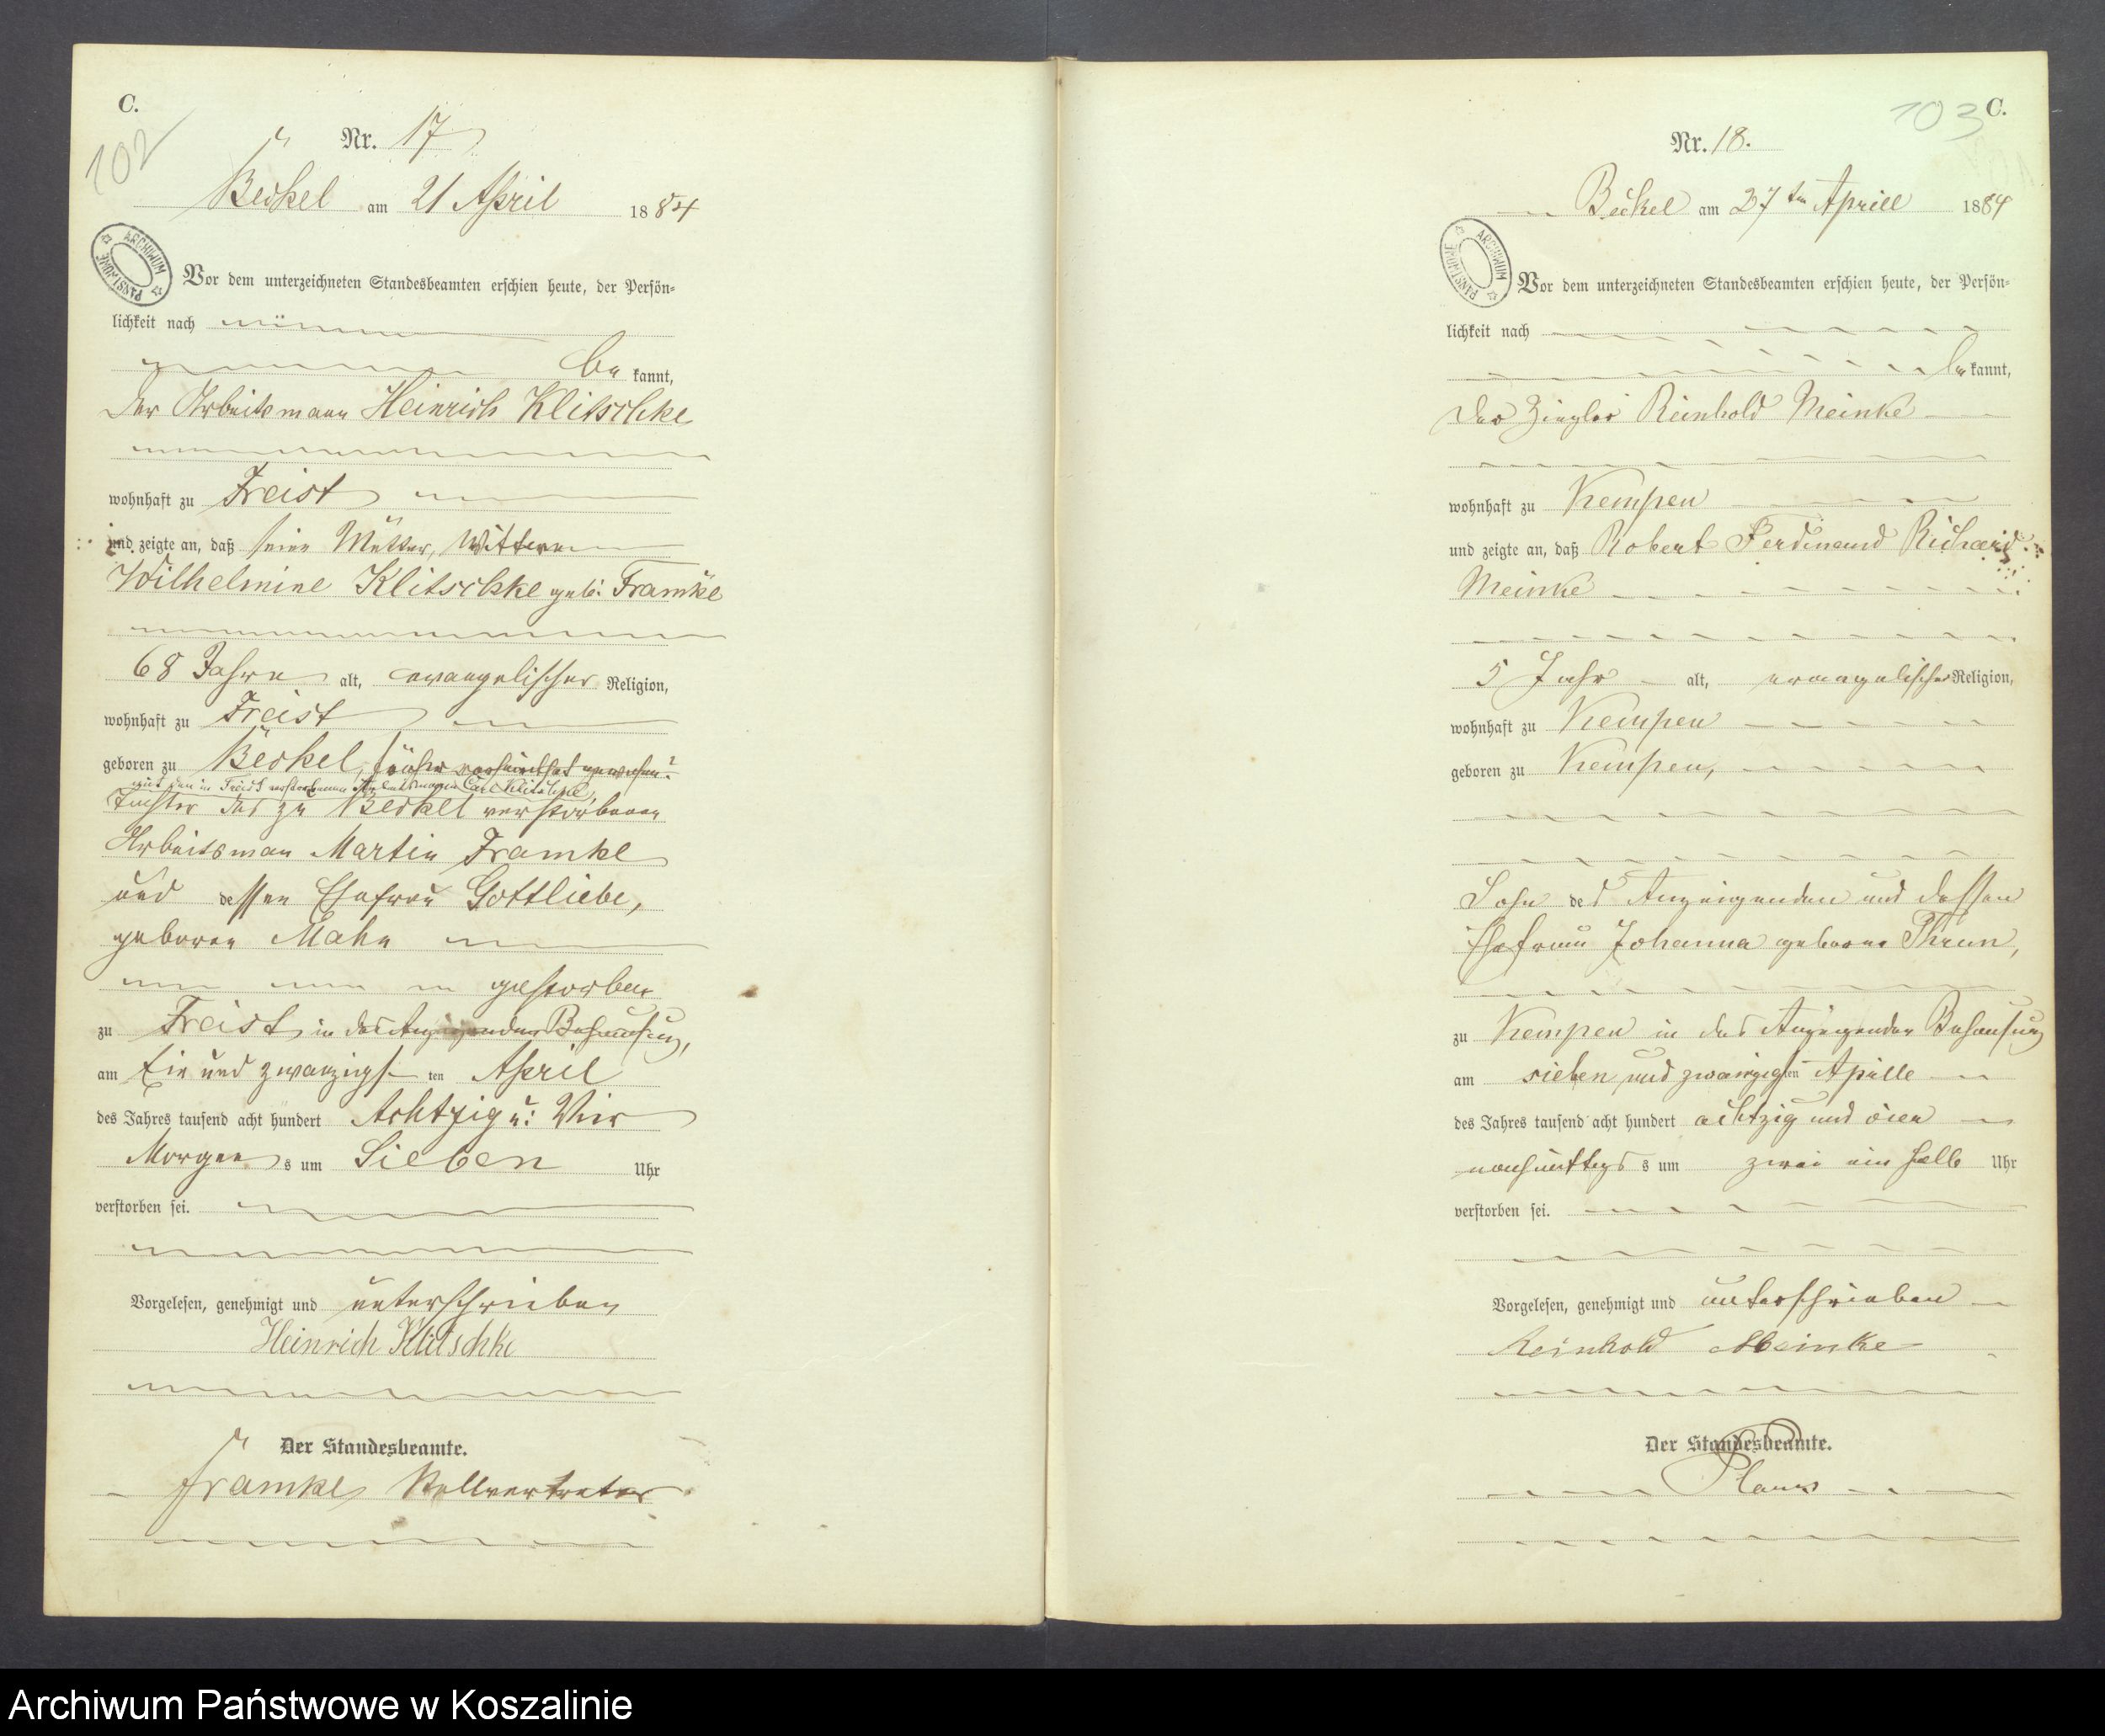 C.
102
Nr. 17
Beckel am 21 April 1884
ARCHIWUM PAŃSTWOWE
Vor dem unterzeichneten Standesbeamten erschien heute, der Persön-
lichkeit nach
be kannt,
der Arbeitsmann Heinrich Klitschke
wohnhaft zu Freist
und zeigte an, daß seine Mutter, Wittwe
Wilhelmine Klitschke geb: Framke
68 Jahre alt, evangelischer Religion,
wohnhaft zu Freist
geboren zu Beckel, früher verheirathet gewesen
mit den in Freist verstorbenen Arbeitsmann Carl Klitschke,
Tochter des zu Beckel verstorbenen
Arbeitsman Martin Framke
und dessen Ehefrau Gottliebe,
geboren Mahn
gestorben
zu Freist in des Anzeigenden Behausung,
am Ein und zwanzigsten April
des Jahres tausend acht hundert Achtzig u: Vier
Morgens um Sieben Uhr
verstorben sei.
Vorgelesen, genehmigt und unterschrieben
Heinrich Klitschke
Der Standesbeamte.
Framke Stellvertreter
103 C.
Nr. 18.
Beckel am 27ten Aprill 1884
ARCHIWUM PAŃSTWOWE
Vor dem unterzeichneten Standesbeamten erschien heute, der Persön-
lichkeit nach
be kannt,
der Ziegler Reinhold Meinke
wohnhaft zu Kempen
und zeigte an, daß Robert Ferdinand Richard
Meinke
5 Jahr alt, evangelischer Religion,
wohnhaft zu Kempen
geboren zu Kempen,
Sohn des Anzeigenden und dessen
Ehefrau Johanna geborne Thrun,
zu Kempen in des Anzeigenden Behausung
am sieben und zwanzigsten Aprille
des Jahres tausend acht hundert achtzig und vier
nachmittags s um zwei ein halb Uhr
verstorben sei.
Vorgelesen, genehmigt und unterschrieben
Reinhold Meinke
Der Standesbeamte.
Archiwum Państwowe w Koszalinie